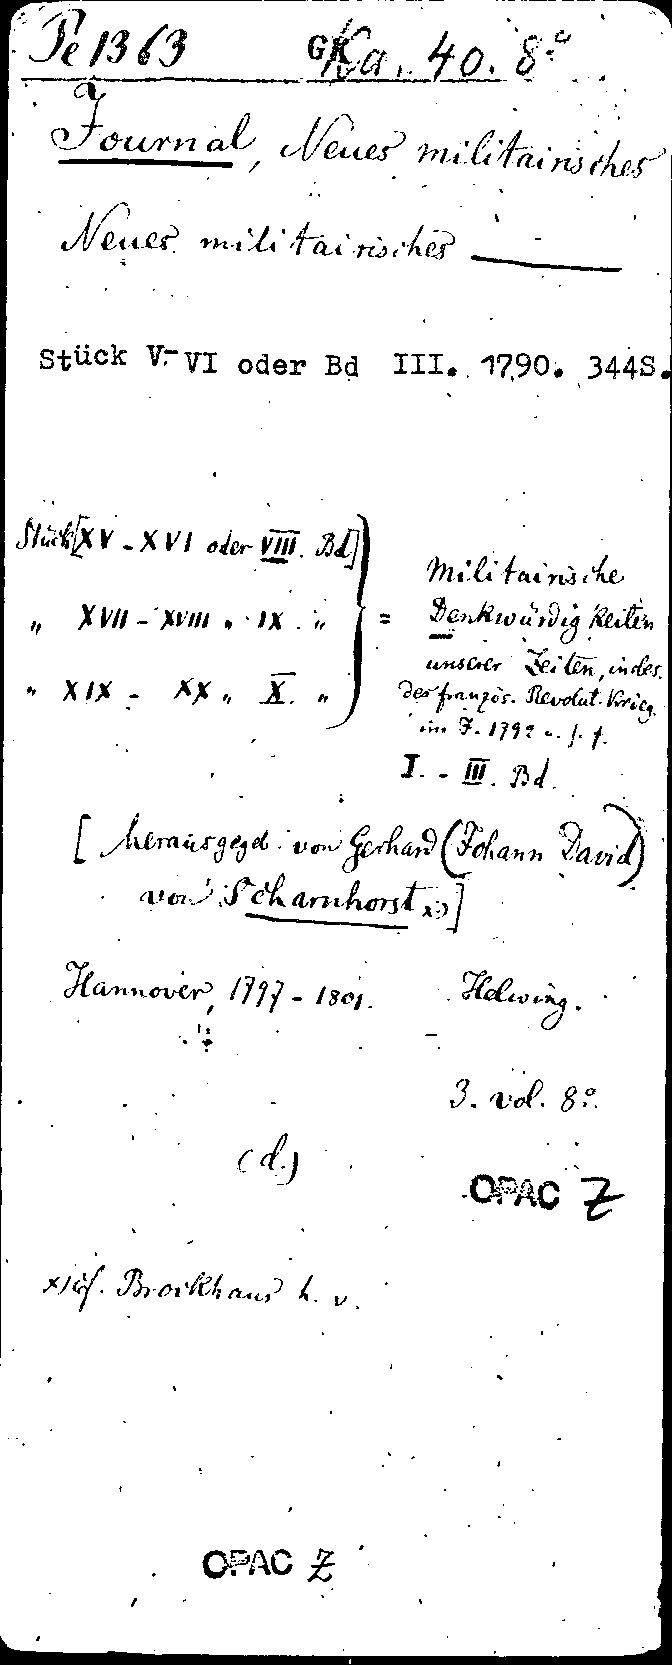 Pe 1363 GK Ka. 40. 8°
Journal, Neues militairisches
Neues militairisches ———
Stück V-VI oder Bd III. 1790. 344S.
Stück [XV - XVI oder VIII. Bd]
„ XVII - XVIII „ IX. „
„ XIX - XX „ X. „
= Militairische
Denkwürdigkeiten
unserer Zeiten, insbes.
des französ. Revolut. Krieg.
im J. 1792 u. f. f.
I. - III. Bd.
[herausgegeb. von Gerhard (Johann David)
von Scharnhorst x)]
Hannover, 1797 - 1801. Helwing.
3. vol. 8°.
(d.)
OPAC Z
x) cf. Brockhaus h. v.
OPAC Z